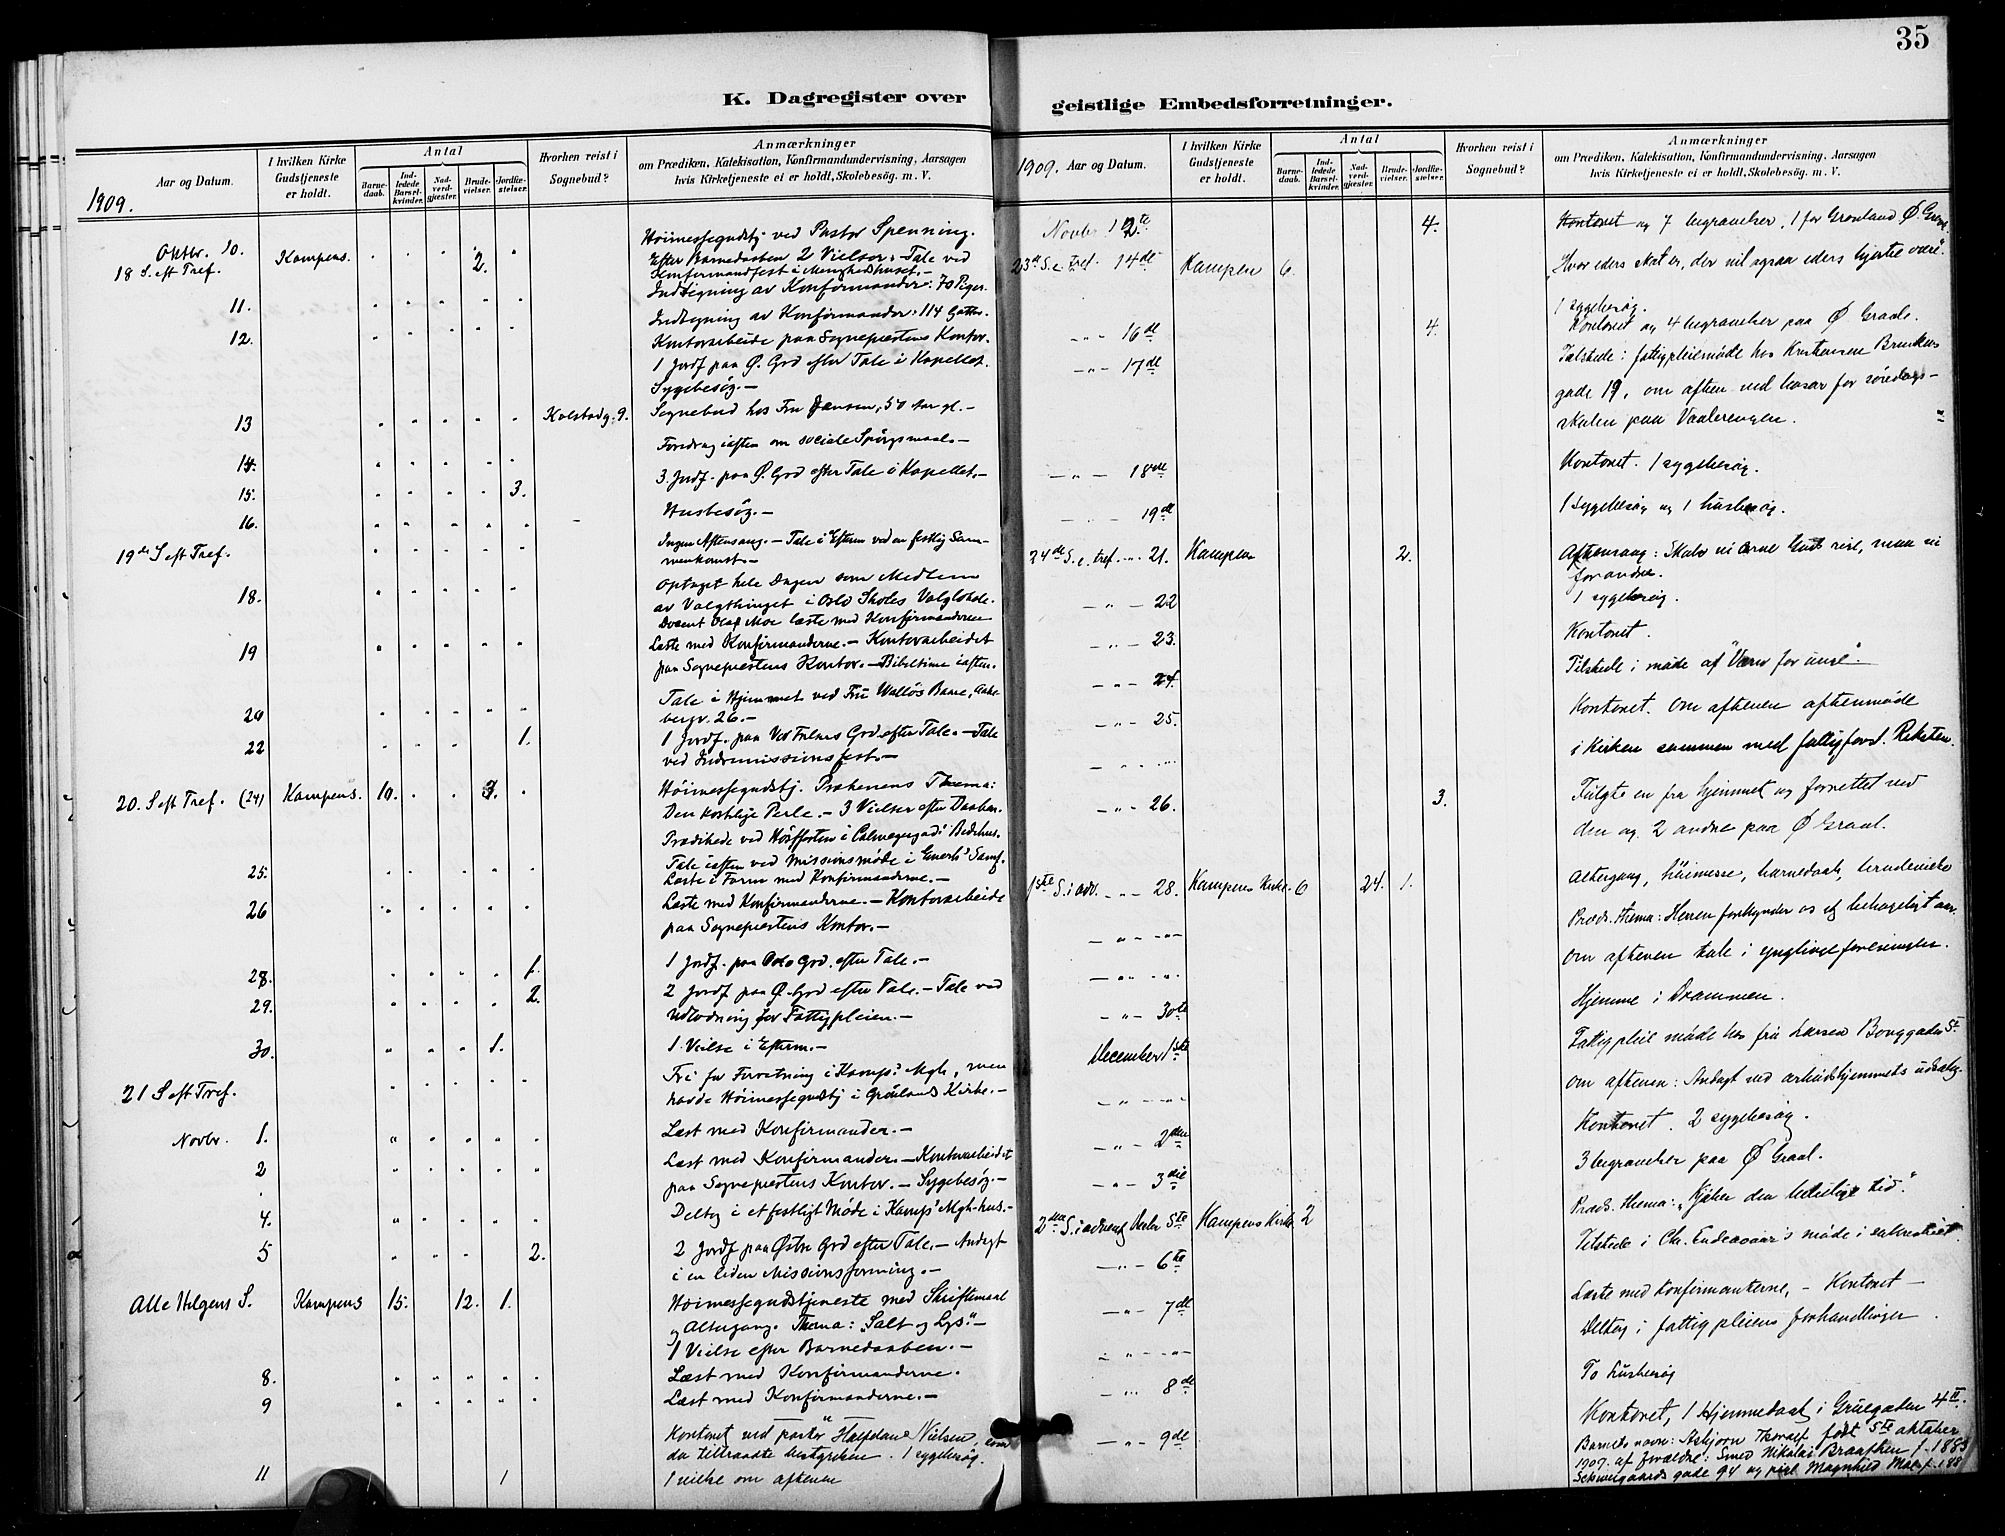 35
K. Dagregister over
Aar og Datum.
I hvilken Kirke Gudstjeneste er holdt.
Antal
Barnedaab.
Indledede Barselkvinder.
Nadverdgjester.
Brudevielser.
Jordfæstelser.
Hvorhen reist i Sognebud?
Anmærkninger
om Prædiken, Katekisation, Konfirmandundervisning, Aarsagen
hvis Kirketjeneste ei er holdt, Skolebesøg, m. V.
1909.
Høimessegudstj. ved Pastor Spenning.
Oktbr. 10.
18 S. eft Tref. Kampens. 2. Efter Barnedaaben 2 Vielser. Tale ved
Konfirmandfest i Menighedshuset.
Indtegning av Konfirmander: 70 Piger.
11. Indtegning av Konfirmander: 114 Gutter.
12. Kontorarbeide paa Sognepræstens Kontor.
1 Jordf paa Ø. Grd efter Tale i Kapellet.
Sygebesøg.
13 Kolstadg. 9. Sognebud hos Fru Jansen, 50 Aar gl.
Foredrag iaften om sociale Spørgsmaal.
14.
15. 3. 3. Jordf. paa Ø. Grd efter Tale i Kapellet.
16. Husbesøg.
19de S eft Tref. Ingen Aftensang. Tale i Efterm ved en festlig Sam-
menkomst.
18. Optaget hele Dagen som Medlem
av Valgthinget i Oslo Skoles Valglokale.
Docent Olaf Moe læste med Konfirmanderne
19 Læste med Konfirmanderne. Kontorarbeidet
paa Sognepræstens Kontor. Bibeltime iaften.
20 Tale i Hjemmet ved Fru Walløs Baare, Aake-
bergv. 26.
22 1. 1 Jordf. paa Vor Frelsers Grd. efter Tale. Tale
ved Indremissionsfest.
20. S eft Tref. (24) Kampens. 10. 3. Høimessegudstj. Prækenens Thema:
Den kostelige Perle. 3 Vielser efter Daaben.
Tale iaften ved Missionsmøde i
25. Læste i Form med Konfirmanderne.
26 Læste med Konfirmanderne. Kontorarbeide
paa Sognepræstens Kontor.
28. 1. 1 Jordf. paa Oslo Grd. efter Tale.
29. 2. 2 Jordf paa Ø. Grd efter Tale. Tale ved
Udlodning for Fattigpleien.
30. 1. 1. Vielse i Efterm.
21 S eft Tref. Fri for Forretning i Kamp. Mgh, men
havde Høimessegudstj i Grønlands Kirke.
Novbr. 1. Læst med Konfirmander.
2 Læst med Konfirmander. Kontorarbeidet
paa Sognepræstens Kontor. Sygebesøg.
4. Deltog i et festligt Møde i Kamp. Mgh-hus.
5 2. 2 Jordf paa Østre Grd efter Tale. Andagt
i en liden Missionsforening.
Alle Helgens S. Kampens 15. 12. 1. Høimessegudstjeneste med Skriftemaal
og Altergang. Thema: "Salt og Lys."
1 Vielse efter Barnedaaben.
8. Læst med Konfirmanderne.
9 Læst med Konfirmanderne.
Kontoret ved pastor Halfdan Nielsen, som
da tiltraadte bestyrelsen. 1 sygebesøg.
11 1 1 vielse om aftenen
geistlige Embedsforretninger.
1909. Aar og Datum.
I hvilken Kirke Gudstjeneste er holdt.
Antal
Barnedaab.
Indledede Barselkvinder.
Nadverdgjester.
Brudevielser.
Jordfæstelser.
Hvorhen reist i Sognebud?
Anmærkninger
om Prædiken, Katekisation, Konfirmandundervisning, Aarsagen
hvis Kirketjeneste ei er holdt, Skolebesøg, m. V.
Novbr 12te 4. Kontoret og 7 begravelser, 1 for Grønland Ø. Grav.
23de S. e. tref. 14de Kampen 6. Hvor eders skat er, der vil ogsaa eders hjerte være".
1 sygebesøg.
16de 4. Kontoret og 4 begravelser paa Ø Gravl.
17de Tilstede i fattigpleiemøde hos Kristiansen
gade 19, om aften ved basar for søndags-
skolen paa Vaalerengen.
18de Kontoret. 1 sygebesøg.
19de 1 Sygebesøg og 1 husbesøg.
24de S. e. tref. 21. Kampen 2. Aftensang: Skabe vi Guds
for andre.
22 1 sygebesøg.
23. Kontoret.
24. Tilstede i møde af "Værn for unge".
25. Kontoret. Om aftenen aftenmøde
i Kirken sammen med fattigford. Reksten.
26. 3. Fulgte en fra hjemmet og forrettet ved
den og 2 andre paa Ø Gravl.
1ste S. i adv. 28. Kampens Kirke. 6 24. 1. Altergang, høimesse, barnedaab, brudevielse
Præd. thema: Herren forkynder os et behageligt aar.
Om aftenen tale i ynglingeforeningen.
Hjemme i Drammen.
30te Fattigpleie møde hos fru Larsen Bøggaden 5I
December 1ste Om aftenen: Andagt ved arbeidshjemmets udsalg.
Kontoret. 2 sygebesøg.
2den 3 begravelser paa Ø Gravl.
3die Præd. thema: "Kjøber den beleilige tid".
2den S. i advent Decbr 5te Kampens Kirke 2 Tilstede i Chr. Endeavour's møde i sakristiet.
6te Læste med konfirmanterne, Kontoret
7de Deltog i fattigpleiens forhandlinger.
To husbesøg
8de Kontoret, 1 hjemmedaab i Gruegaden 4II.
9de Barnets navn: Asbjørn Thoralf født 5te oktober
1907. af forældre: Smed Nikolai Braathen f. 1883
Schweigaards gade 94 og pige Magnhild Moe f. 188